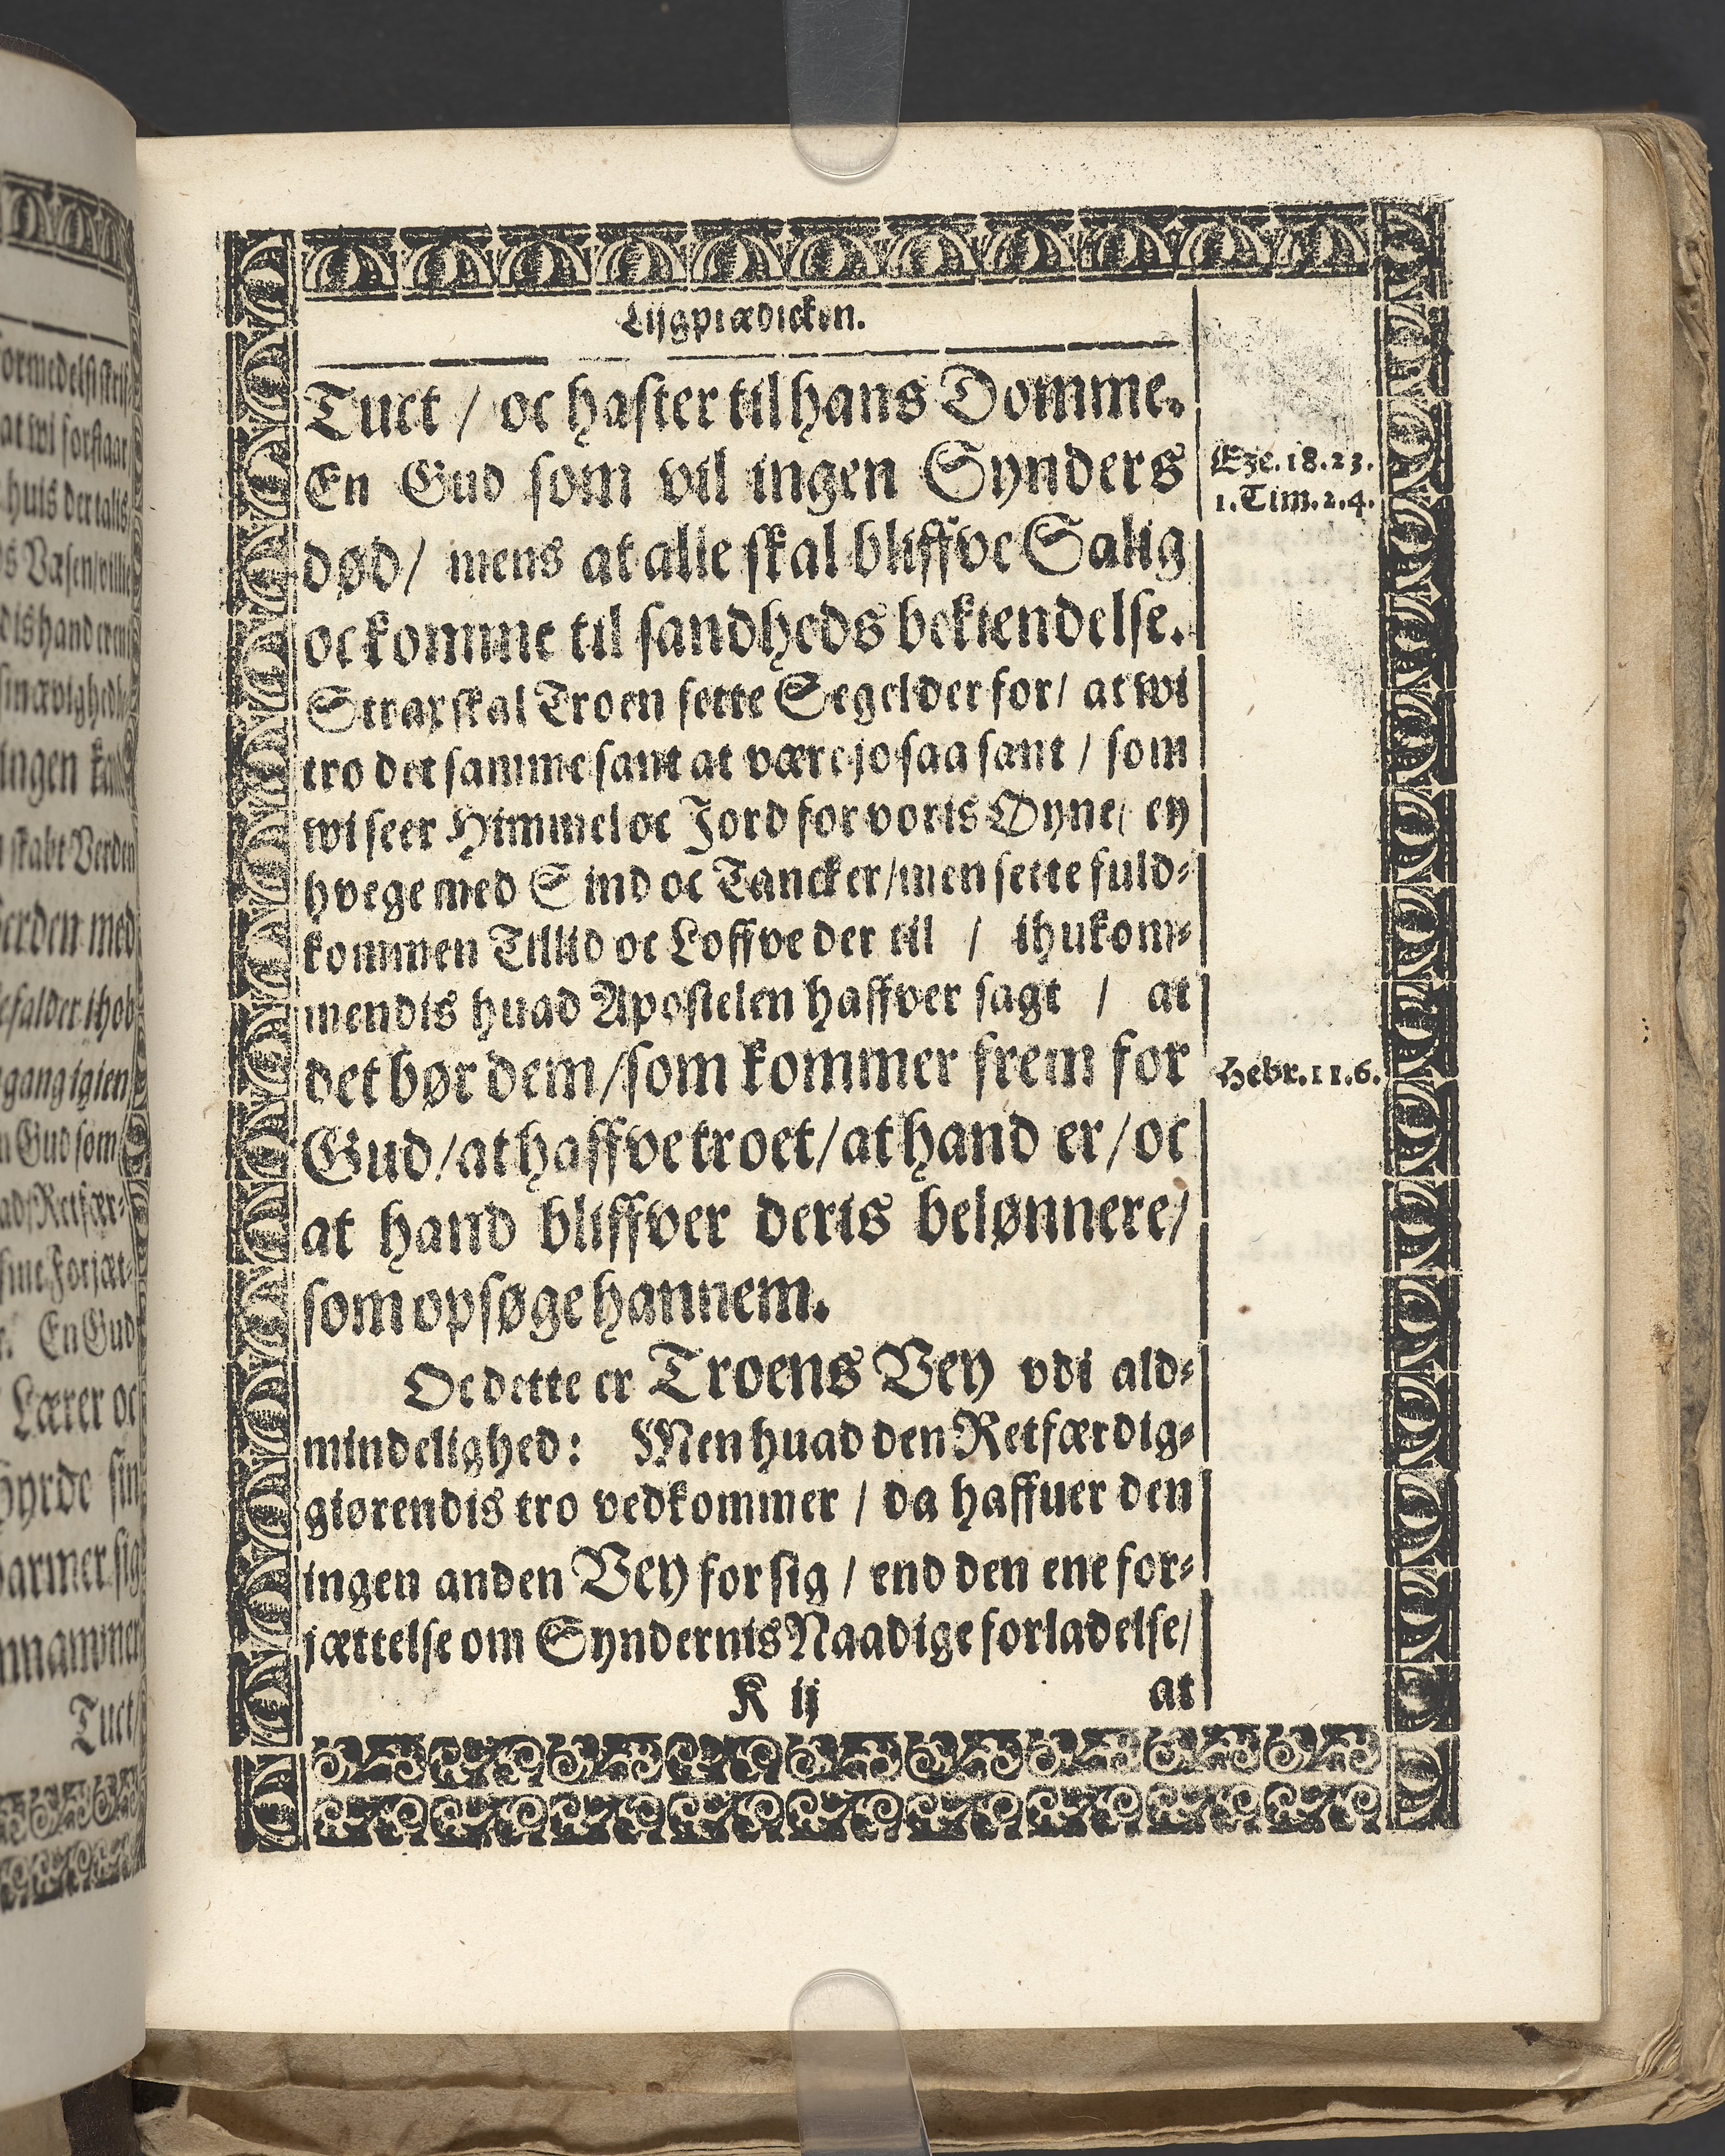 Lijgprædicken.
Tuct / oc haster til hans Domme.
En Gud som vil ingen Synders
død / mens at alle skal bliffve Salig
oc komme til sandheds bekiendelse.
Strax skal Troen sette Segel der for / at wi
tro det samme sant at være jo saa sant / som
wi seer Himmel oc Jord for voris Øyne / ey
hvege med Sind oc Tancker / men sette fuld⸗
kommen Tillid oc Loffve der til / ihukom⸗
mendis huad Apostelen haffver sagt / at
det bør dem / som kommer frem for
Gud / at haffve troet / at hand er / oc
at hand bliffver deris belønnere /
som opsøge hannem.
Oc dette er Troens Vey vdi ald⸗
mindelighed: Men huad den Retfærdig⸗
giørendis tro vedkommer / da haffuer den
ingen anden Vey for sig / end den ene for⸗
jættelse om Syndernis Naadige forladelse /
K ij at
Eze. 18. 23.
1. Tim. 2. 4.
Hebr. 11. 6.
at wi forstaar
Væsen
ingen
skabt Verden
med
igien
Gud som
En Gud
Lærer oc
sin
sig
Tuct